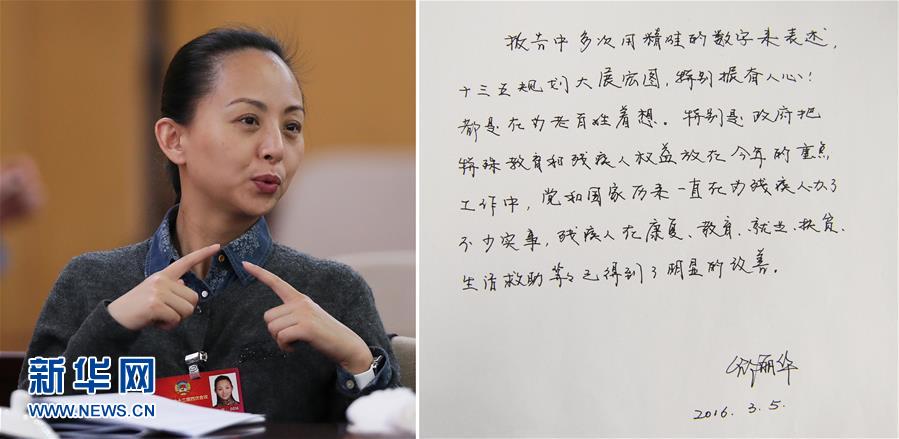 新华网
WWW.NEWS.CN
十二届四次会议
报告中多次用精准的数字来表述，
十三五规划大展宏图，特别振奋人心！
都是在为老百姓着想。特别是政府把
特殊教育和残疾人权益放在今年的重点
工作中，党和国家历来一直在为残疾人办了
不少实事，残疾人在康复、教育、就业、扶贫、
生活救助等已得到了明显的改善。
邰丽华
2016. 3. 5.